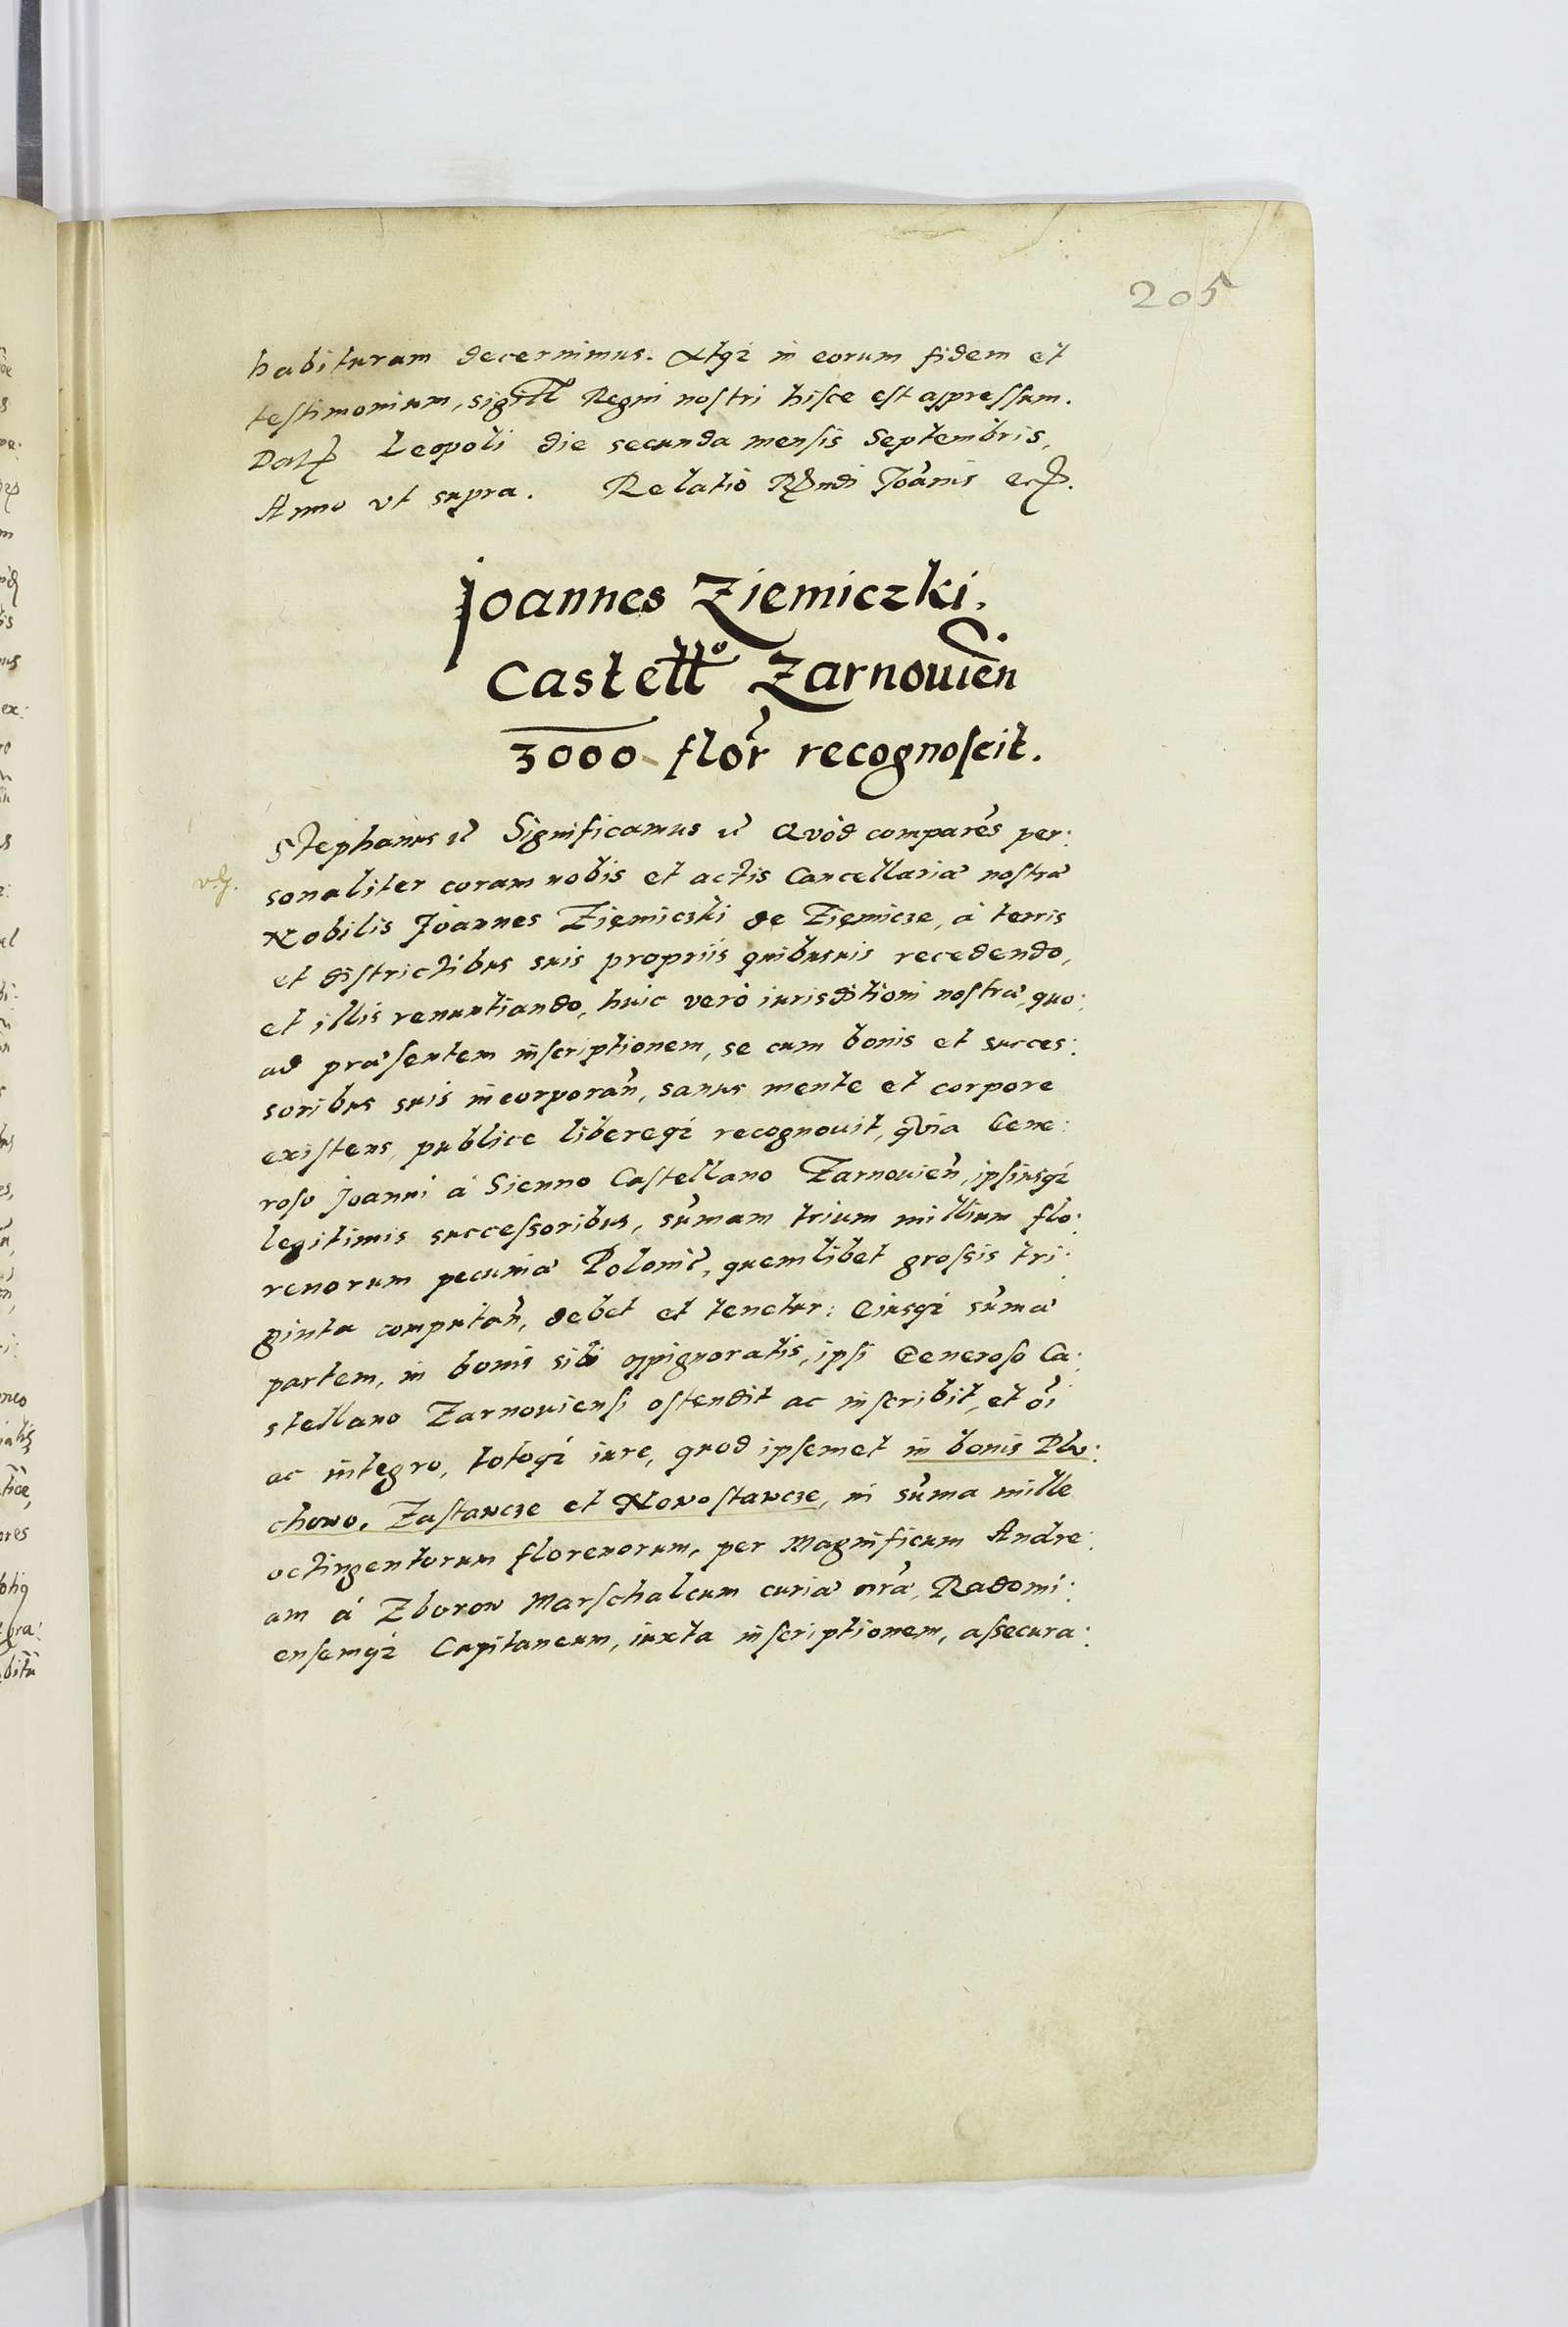 205
habituram decernimus. Atqz in eorum fidem et
testimonium, sigill Regni nostri hisce est appressum.
Datt Leopoli die secunda mensis Septembris,
Anno vt supra. Relatio Rndi Joannis ect.
Joannes Ziemiczki.
Castello Zarnouien
3000 flor recognoscit.
Stephanus etc Significamus etc Quod comparens per:
sonaliter coram nobis et actis Cancellariæ nostræ
Nobilis Joannes Zięmiczki de Zięmicze, à terris
et districtibus suis propriis quibusuis recedendo,
et illis renuntiando, huic verò iurisditioni nostræ, quo:
ad præsentem inscriptionem, se cum bonis et succes:
soribus suis incorporan, sanus mente et corpore
existens, publice libereqz recognouit, quia Gene:
roso Joanni à Sienno Castellano Zarnouien, ipsiusqz
legitimis successoribus, sumam trium millium flo:
renorum pecuniæ Polonic, quemlibet grossis tri:
ginta computan, debet et tenetur: Eiusqz sumæ
partem, in bonis sibi oppignoratis, ipsi Generoso Ca:
stellano Zarnouiensi ostendit ac inscribit, et oi
ac integro, totoqz iure, quod ipsemet in bonis Plu:
chowo, Zastawcze et Nowostawcze, in suma mille
octingentorum florenorum, per Magnificum Andre:
am à Zborow Marschalcum curiæ nræ, Radomi:
ensemqz Capitaneum, iuxta inscriptionem, assecura: